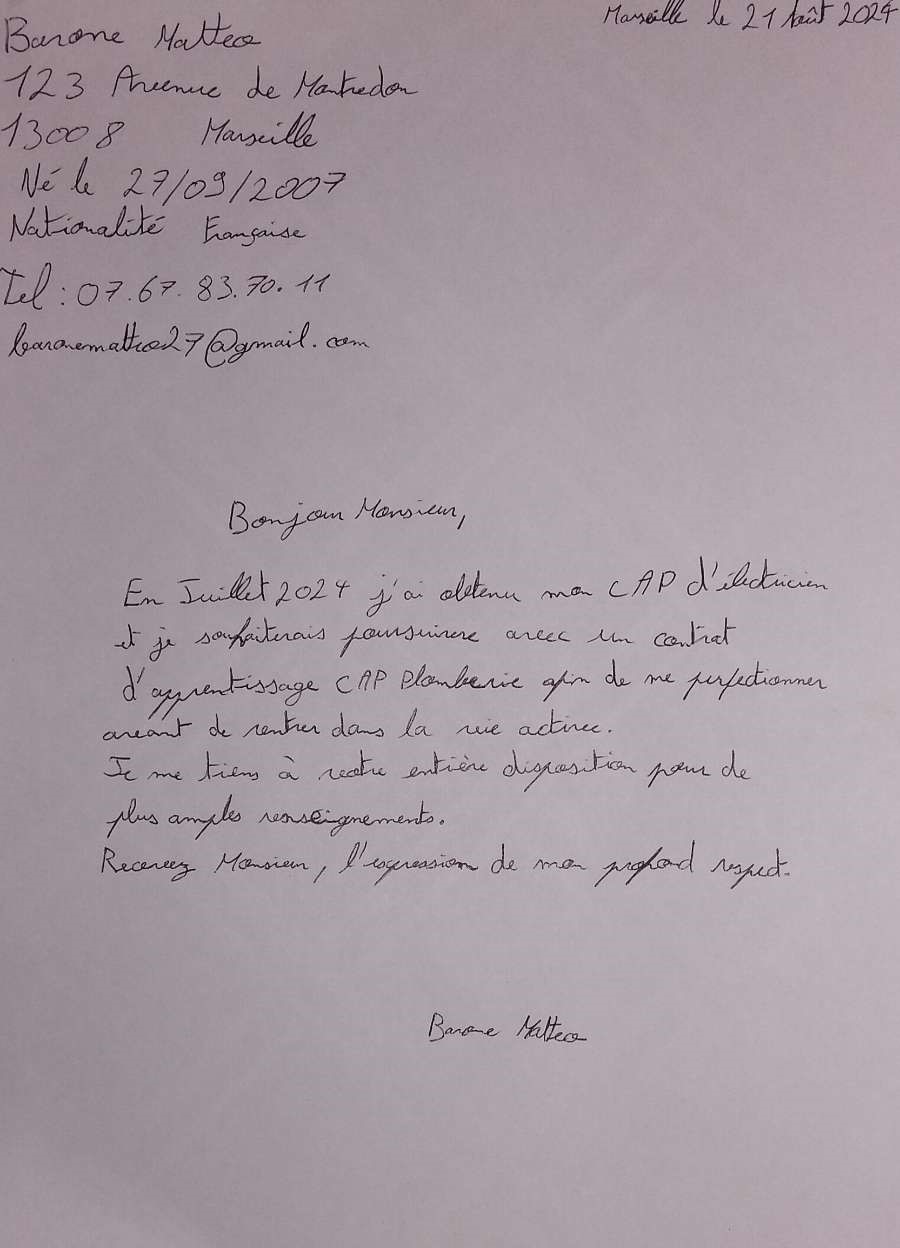 Marseille le 21 Août 2024
Barone Matteo
123 Avenue de Montredon
13008 Marseille
Né le 27/09/2007
Nationalité Française
Tel : 07.67.83.70.11
baronematteo27@gmail.com
Bonjour Monsieur,
En Juillet 2024 j'ai obtenu mon CAP d'électricien
et je souhaiterais poursuivre avec un contrat
d'apprentissage CAP Plomberie afin de me perfectionner
avant de rentrer dans la vie active.
Je me tiens à votre entière disposition pour de
plus amples renseignements.
Recevez Monsieur, l'expression de mon profond respect.
Barone Matteo